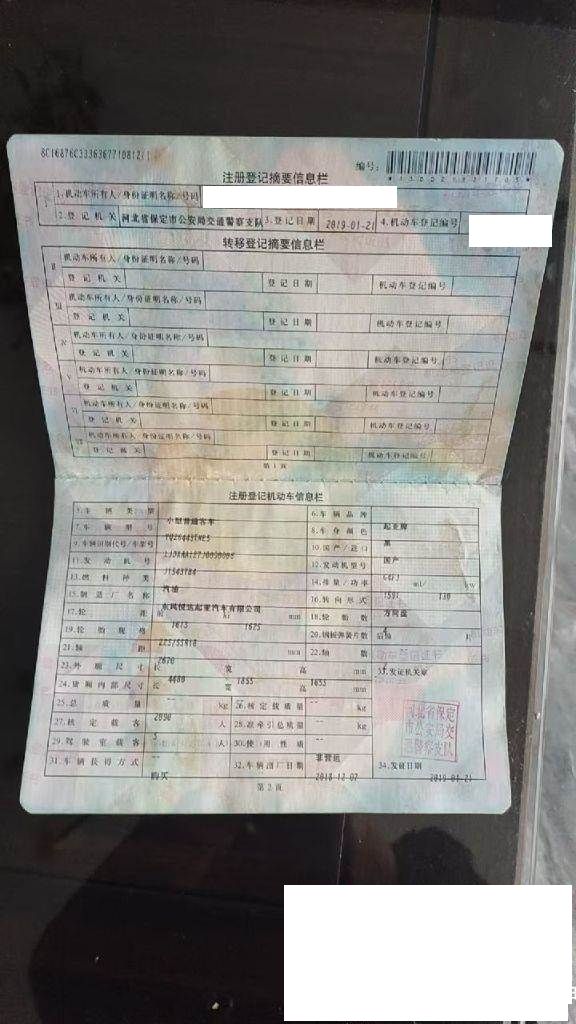 编号:
注册登记摘要信息栏
1.机动车所有人/身份证明名称/号码
2.登记机关 河北省保定市公安局交通警察支队 3.登记日期 2019-01-21 4.机动车登记编号
转移登记摘要信息栏
Ⅱ 机动车所有人/身份证明名称/号码
登记机关 登记日期 机动车登记编号
Ⅲ 机动车所有人/身份证明名称/号码
登记机关 登记日期 机动车登记编号
Ⅳ 机动车所有人/身份证明名称/号码
登记机关 登记日期 机动车登记编号
Ⅴ 机动车所有人/身份证明名称/号码
登记机关 登记日期 机动车登记编号
Ⅵ 机动车所有人/身份证明名称/号码
登记机关 登记日期 机动车登记编号
Ⅶ 机动车所有人/身份证明名称/号码
登记机关 登记日期 机动车登记编号
第1页
注册登记机动车信息栏
5.车辆类型 小型普通客车 6.车辆品牌 起亚牌
7.车辆型号 8.车身颜色 黑
9.车辆识别代号/车架号 10.国产/进口 国产
11.发动机号 12.发动机型号
13.燃料种类 汽油 14.排量/功率 ml/ kw
15.制造厂名称 东风悦达起亚汽车有限公司 16.转向形式 方向盘
17.轮距 前 1613 后 1625 mm 18.轮胎数
19.轮胎规格 225/55R18 20.钢板弹簧片数 后轴
21.轴距 2670 mm 22.轴数
23.外廓尺寸 长 4480 宽 1855 高 1655 mm 33.发证机关章
24.货厢内部尺寸 长 宽 高 mm
25.总质量 kg 26.核定载质量 -- kg
27.核定载客 5 人 28.准牵引总质量 -- kg
29.驾驶室载客 人 30.使用性质 非营运
31.车辆获得方式 购买 32.车辆出厂日期 2018-12-07 34.发证日期 2019-01-21
河北省保定
市公安局交
通警察支队
第2页